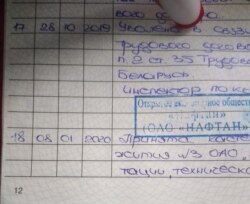 17 28 10 2019 Уволена в связи
трудового догов
п.2 ст.35 Трудов
Беларусь.
Инспектор по ка
Открытое акционерное общество
«Нафтан»
(ОАО «НАФТАН»
18 08 01 2020 Принята
жития №3 ОАО
тации, техническо
12